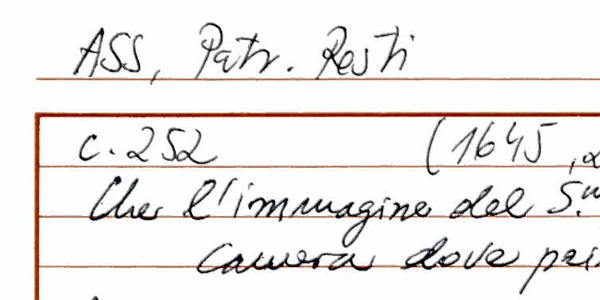 ASS, Patr. Resti
c. 252 (1645,
Che l'immagine del S.
Camera dove